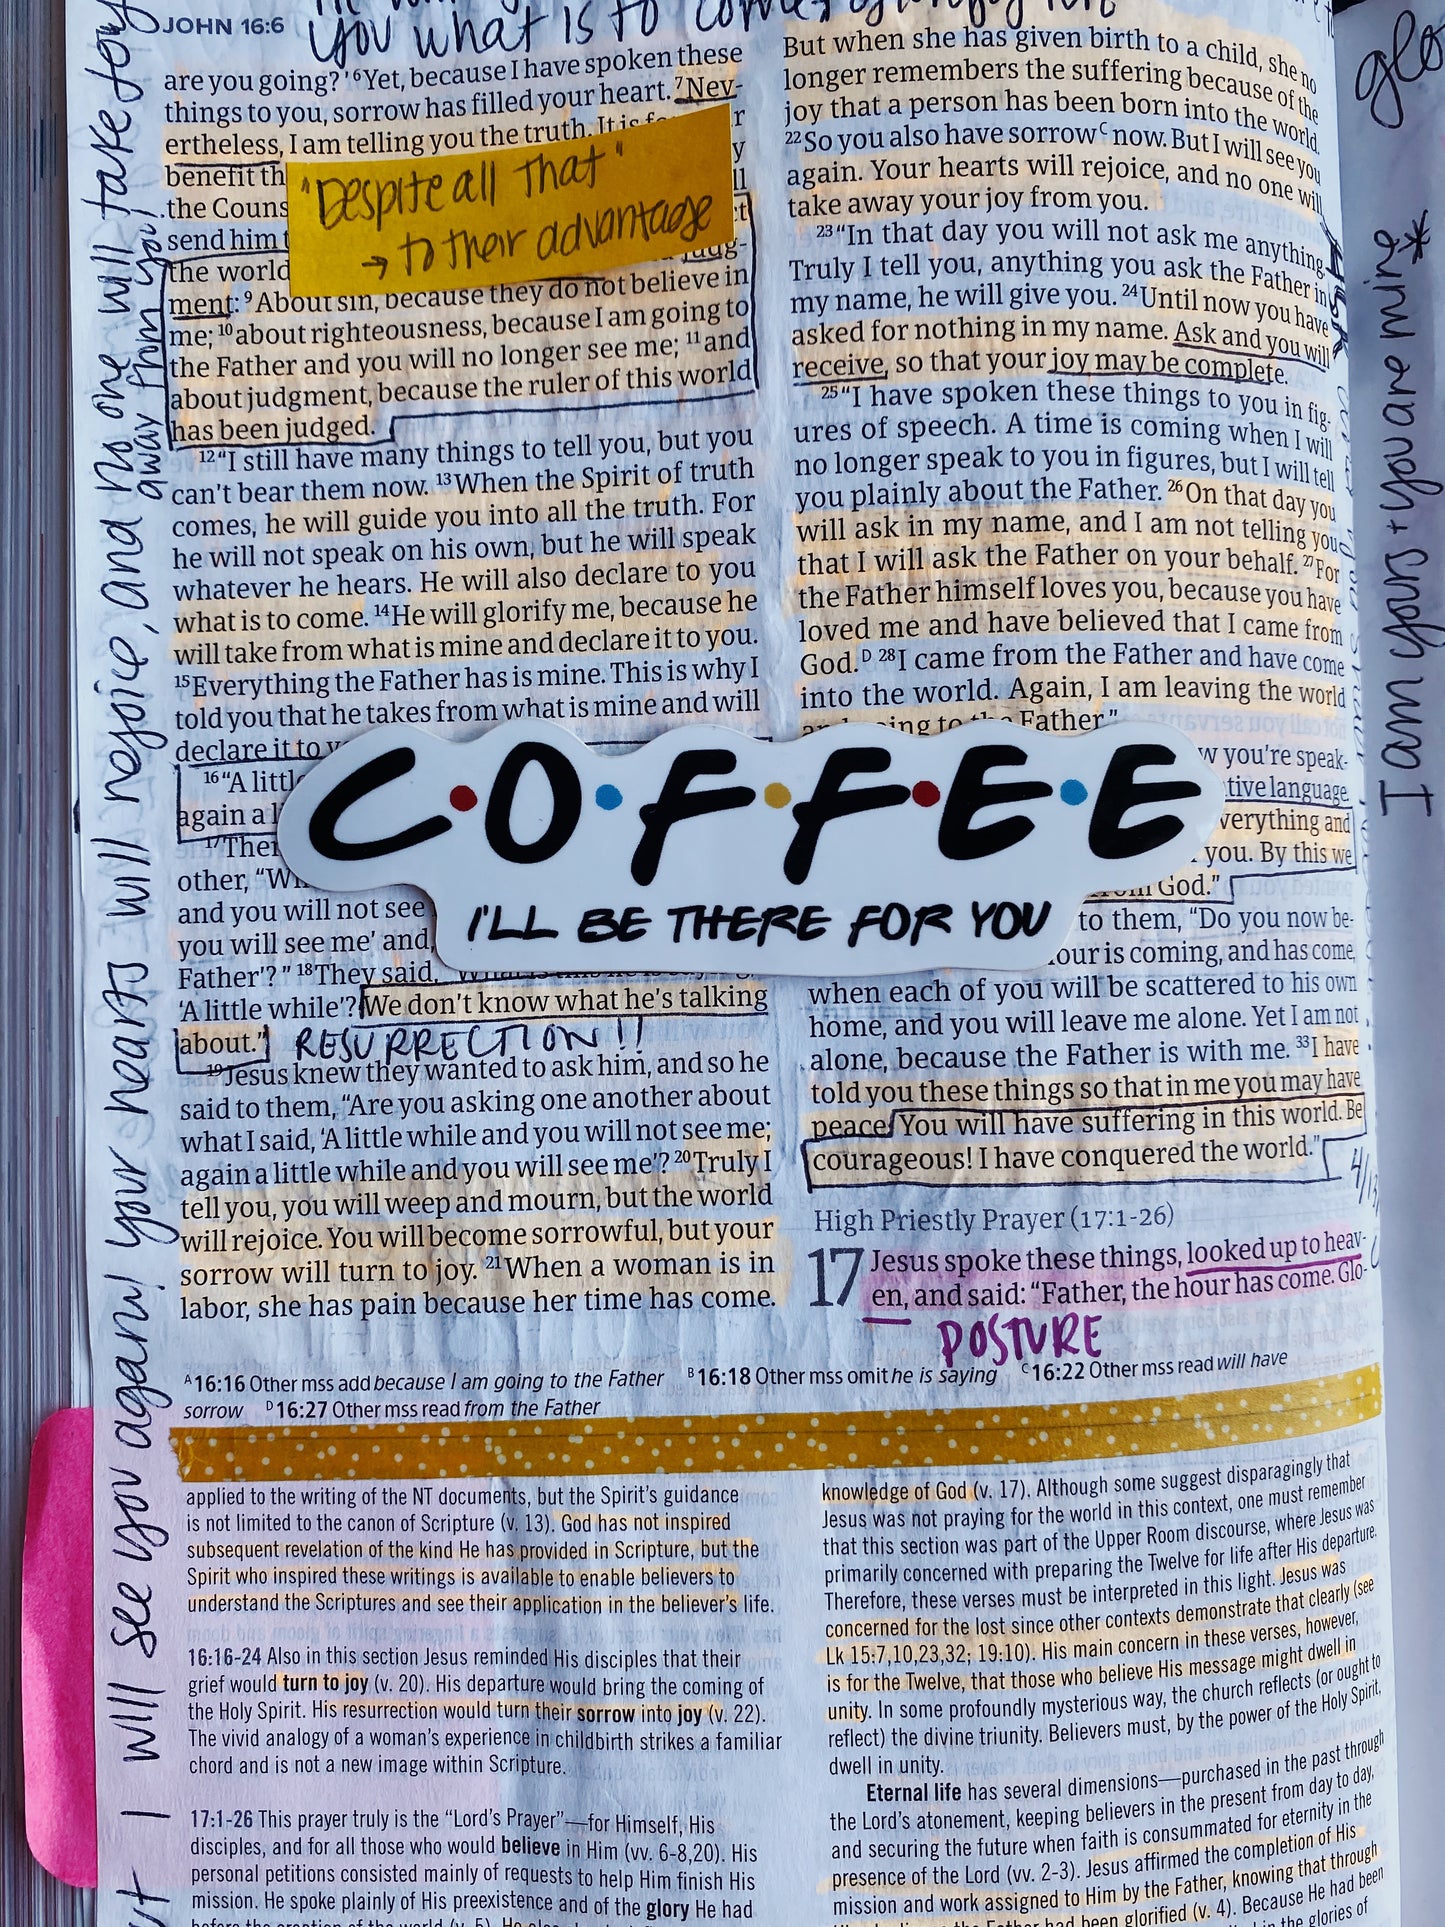 JOHN 16:6
you what is to come + glorify him
are you going?' ⁶Yet, because I have spoken these
things to you, sorrow has filled your heart. ⁷Nev-
ertheless, I am telling you the truth. It is
benefit
the
send him
the world
"Despite all that"
→ to their advantage
ment: ⁹About sin, because they do not believe in
me; ¹⁰about righteousness, because I am going to
the Father and you will no longer see me; ¹¹and
about judgment, because the ruler of this world
has been judged.
¹²"I still have many things to tell you, but you
can't bear them now. ¹³When the Spirit of truth
comes, he will guide you into all the truth. For
he will not speak on his own, but he will speak
whatever he hears. He will also declare to you
what is to come. ¹⁴He will glorify me, because he
will take from what is mine and declare it to you.
¹⁵Everything the Father has is mine. This is why I
told you that he takes from what is mine and will
declare it to
¹⁶"A
again a
other,
and you will not see
you will see me' and,
Father'?" ¹⁸They said, "What is this he is saying,
'A little while'? We don't know what he's talking
about." RESURRECTION!!
¹⁹Jesus knew they wanted to ask him, and so he
said to them, "Are you asking one another about
what I said, 'A little while and you will not see me;
again a little while and you will see me'? ²⁰Truly I
tell you, you will weep and mourn, but the world
will rejoice. You will become sorrowful, but your
sorrow will turn to joy. ²¹When a woman is in
labor, she has pain because her time has come.
But when she has given birth to a child, she no
longer remembers the suffering because of the
joy that a person has been born into the world.
²²So you also have sorrowᶜ now. But I will see you
again. Your hearts will rejoice, and no one will
take away your joy from you.
²³"In that day you will not ask me anything.
Truly I tell you, anything you ask the Father in
my name, he will give you. ²⁴Until now you have
asked for nothing in my name. Ask and you will
receive, so that your joy may be complete.
²⁵"I have spoken these things to you in fig-
ures of speech. A time is coming when I will
no longer speak to you in figures, but I will tell
you plainly about the Father. ²⁶On that day you
will ask in my name, and I am not telling you
that I will ask the Father on your behalf. ²⁷For
the Father himself loves you, because you have
loved me and have believed that I came from
God.ᴰ ²⁸I came from the Father and have come
into the world. Again, I am leaving the world
to the Father."
you're speak-
language.
everything and
you. By this we
from God."
to them, "Do you now be-
is coming, and has come,
when each of you will be scattered to his own
home, and you will leave me alone. Yet I am not
alone, because the Father is with me. ³³I have
told you these things so that in me you may have
peace. You will have suffering in this world. Be
courageous! I have conquered the world."
C·O·F·F·E·E
I'LL BE THERE FOR YOU
High Priestly Prayer (17:1-26)
17 Jesus spoke these things, looked up to heav-
en, and said: "Father, the hour has come. Glo-
POSTURE
ᴬ16:16 Other mss add because I am going to the Father ᴮ16:18 Other mss omit he is saying ᶜ16:22 Other mss read will have
sorrow ᴰ16:27 Other mss read from the Father
applied to the writing of the NT documents, but the Spirit's guidance
is not limited to the canon of Scripture (v. 13). God has not inspired
subsequent revelation of the kind He has provided in Scripture, but the
Spirit who inspired these writings is available to enable believers to
understand the Scriptures and see their application in the believer's life.
16:16-24 Also in this section Jesus reminded His disciples that their
grief would turn to joy (v. 20). His departure would bring the coming of
the Holy Spirit. His resurrection would turn their sorrow into joy (v. 22).
The vivid analogy of a woman's experience in childbirth strikes a familiar
chord and is not a new image within Scripture.
17:1-26 This prayer truly is the "Lord's Prayer"—for Himself, His
disciples, and for all those who would believe in Him (vv. 6-8,20). His
personal petitions consisted mainly of requests to help Him finish His
mission. He spoke plainly of His preexistence and of the glory He had
knowledge of God (v. 17). Although some suggest disparagingly that
Jesus was not praying for the world in this context, one must remember
that this section was part of the Upper Room discourse, where Jesus was
primarily concerned with preparing the Twelve for life after His departure.
Therefore, these verses must be interpreted in this light. Jesus was
concerned for the lost since other contexts demonstrate that clearly (see
Lk 15:7,10,23,32; 19:10). His main concern in these verses, however,
is for the Twelve, that those who believe His message might dwell in
unity. In some profoundly mysterious way, the church reflects (or ought to
reflect) the divine triunity. Believers must, by the power of the Holy Spirit,
dwell in unity.
Eternal life has several dimensions—purchased in the past through
the Lord's atonement, keeping believers in the present from day to day,
and securing the future when faith is consummated for eternity in the
presence of the Lord (vv. 2-3). Jesus affirmed the completion of His
mission and work assigned to Him by the Father, knowing that through
had been glorified (v. 4). Because He had been
in the glories of
I will see you again! your hearts will rejoice, and no one will take your joy
away from you.
I am yours + you are mine *